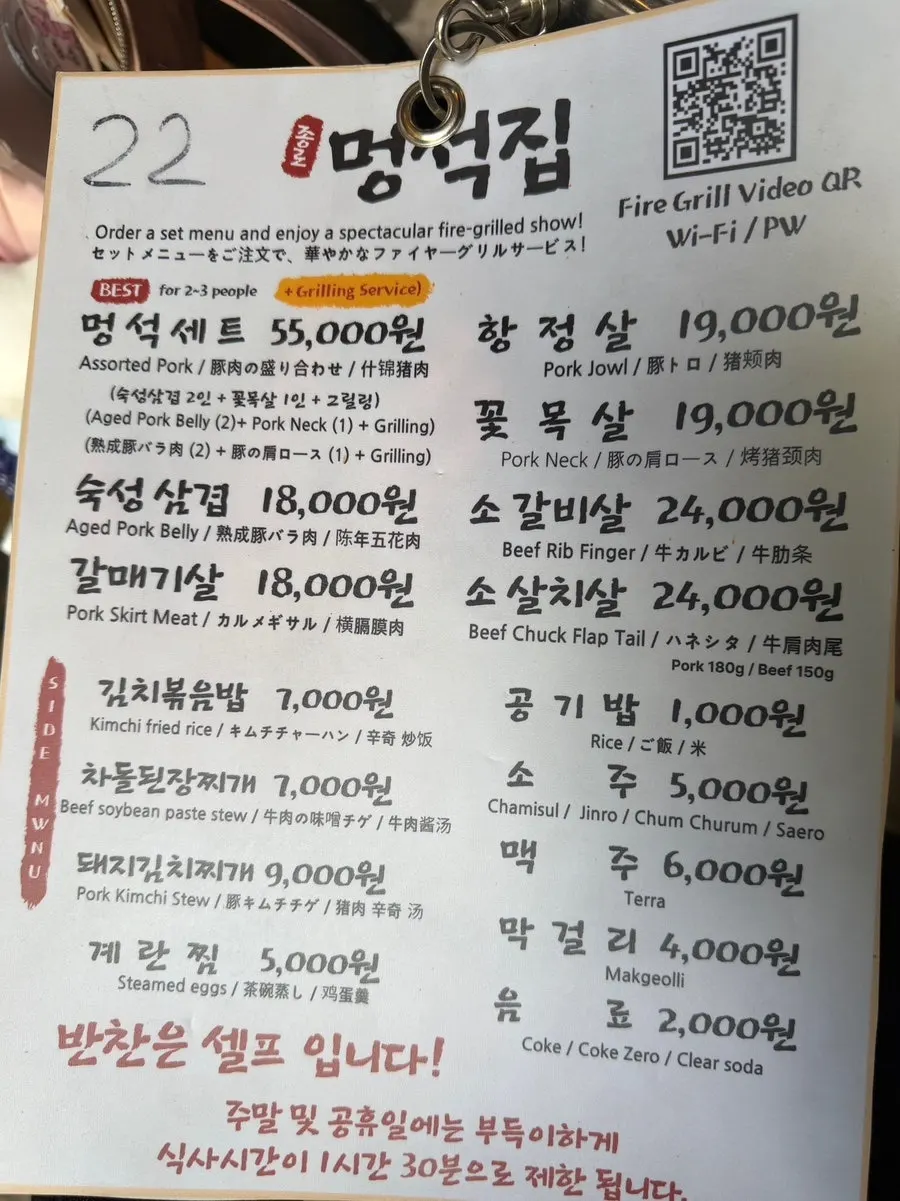 22
종로
멍석집
Fire Grill Video QR
Wi-Fi / PW
. Order a set menu and enjoy a spectacular fire-grilled show!
セットメニューをご注文で、華やかなファイヤーグリルサービス!
BEST for 2~3 people + Grilling Service)
멍석세트 55,000원
Assorted Pork / 豚肉の盛り合わせ / 什锦猪肉
(숙성삼겹 2인 + 꽃목살 1인 + 그릴링)
(Aged Pork Belly (2)+ Pork Neck (1) + Grilling)
(熟成豚バラ肉 (2) + 豚の肩ロース (1) + Grilling)
숙성삼겹 18,000원
Aged Pork Belly / 熟成豚バラ肉 / 陈年五花肉
갈매기살 18,000원
Pork Skirt Meat / カルメギサル / 横膈膜肉
항정살 19,000원
Pork Jowl / 豚トロ / 猪颊肉
꽃목살 19,000원
Pork Neck / 豚の肩ロース / 烤猪颈肉
소갈비살 24,000원
Beef Rib Finger / 牛カルビ / 牛肋条
소살치살 24,000원
Beef Chuck Flap Tail / ハネシタ / 牛肩肉尾
Pork 180g / Beef 150g
SIDE MWNU
김치볶음밥 7,000원
Kimchi fried rice / キムチチャーハン / 辛奇 炒饭
차돌된장찌개 7,000원
Beef soybean paste stew / 牛肉の味噌チゲ / 牛肉酱汤
돼지김치찌개 9,000원
Pork Kimchi Stew / 豚キムチチゲ / 猪肉 辛奇 汤
계란찜 5,000원
Steamed eggs / 茶碗蒸し / 鸡蛋羹
공기밥 1,000원
Rice / ご飯 / 米
소주 5,000원
Chamisul / Jinro / Chum Churum / Saero
맥주 6,000원
Terra
막걸리 4,000원
Makgeolli
음료 2,000원
Coke / Coke Zero / Clear soda
반찬은 셀프 입니다!
주말 및 공휴일에는 부득이하게
식사시간이 1시간 30분으로 제한 됩니다.